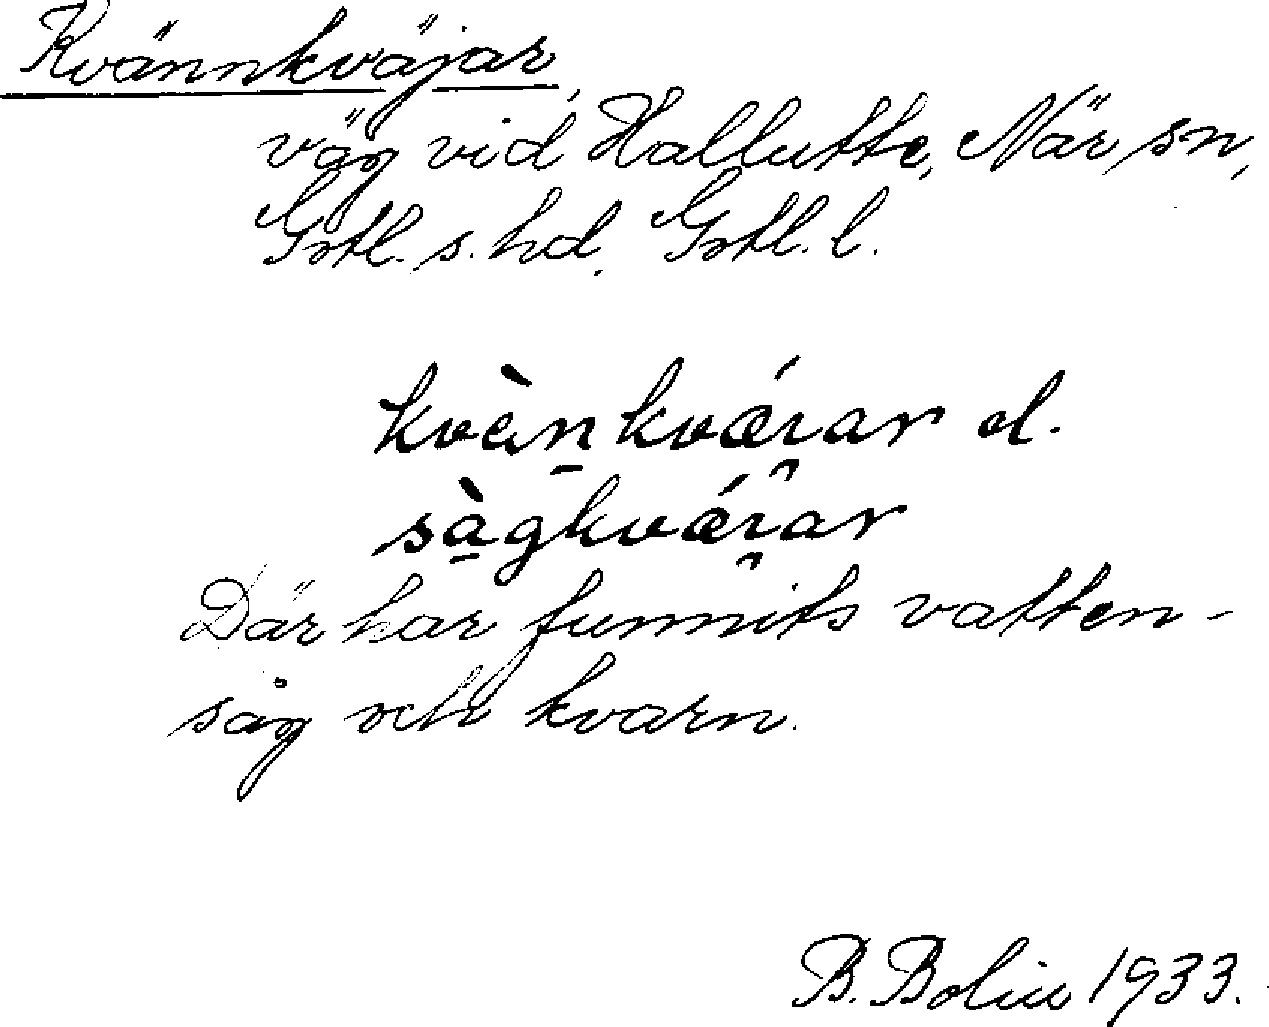 Kvännkväjar,
väg vid Hallutte, När sn,
Gotl. s. hd. Gotl. l.
kvèn̠kvǽı̯ar el.
sà̠gkvǽı̯ar
Där har funnits vatten-
såg och kvarn.
B. Bolin 1933.